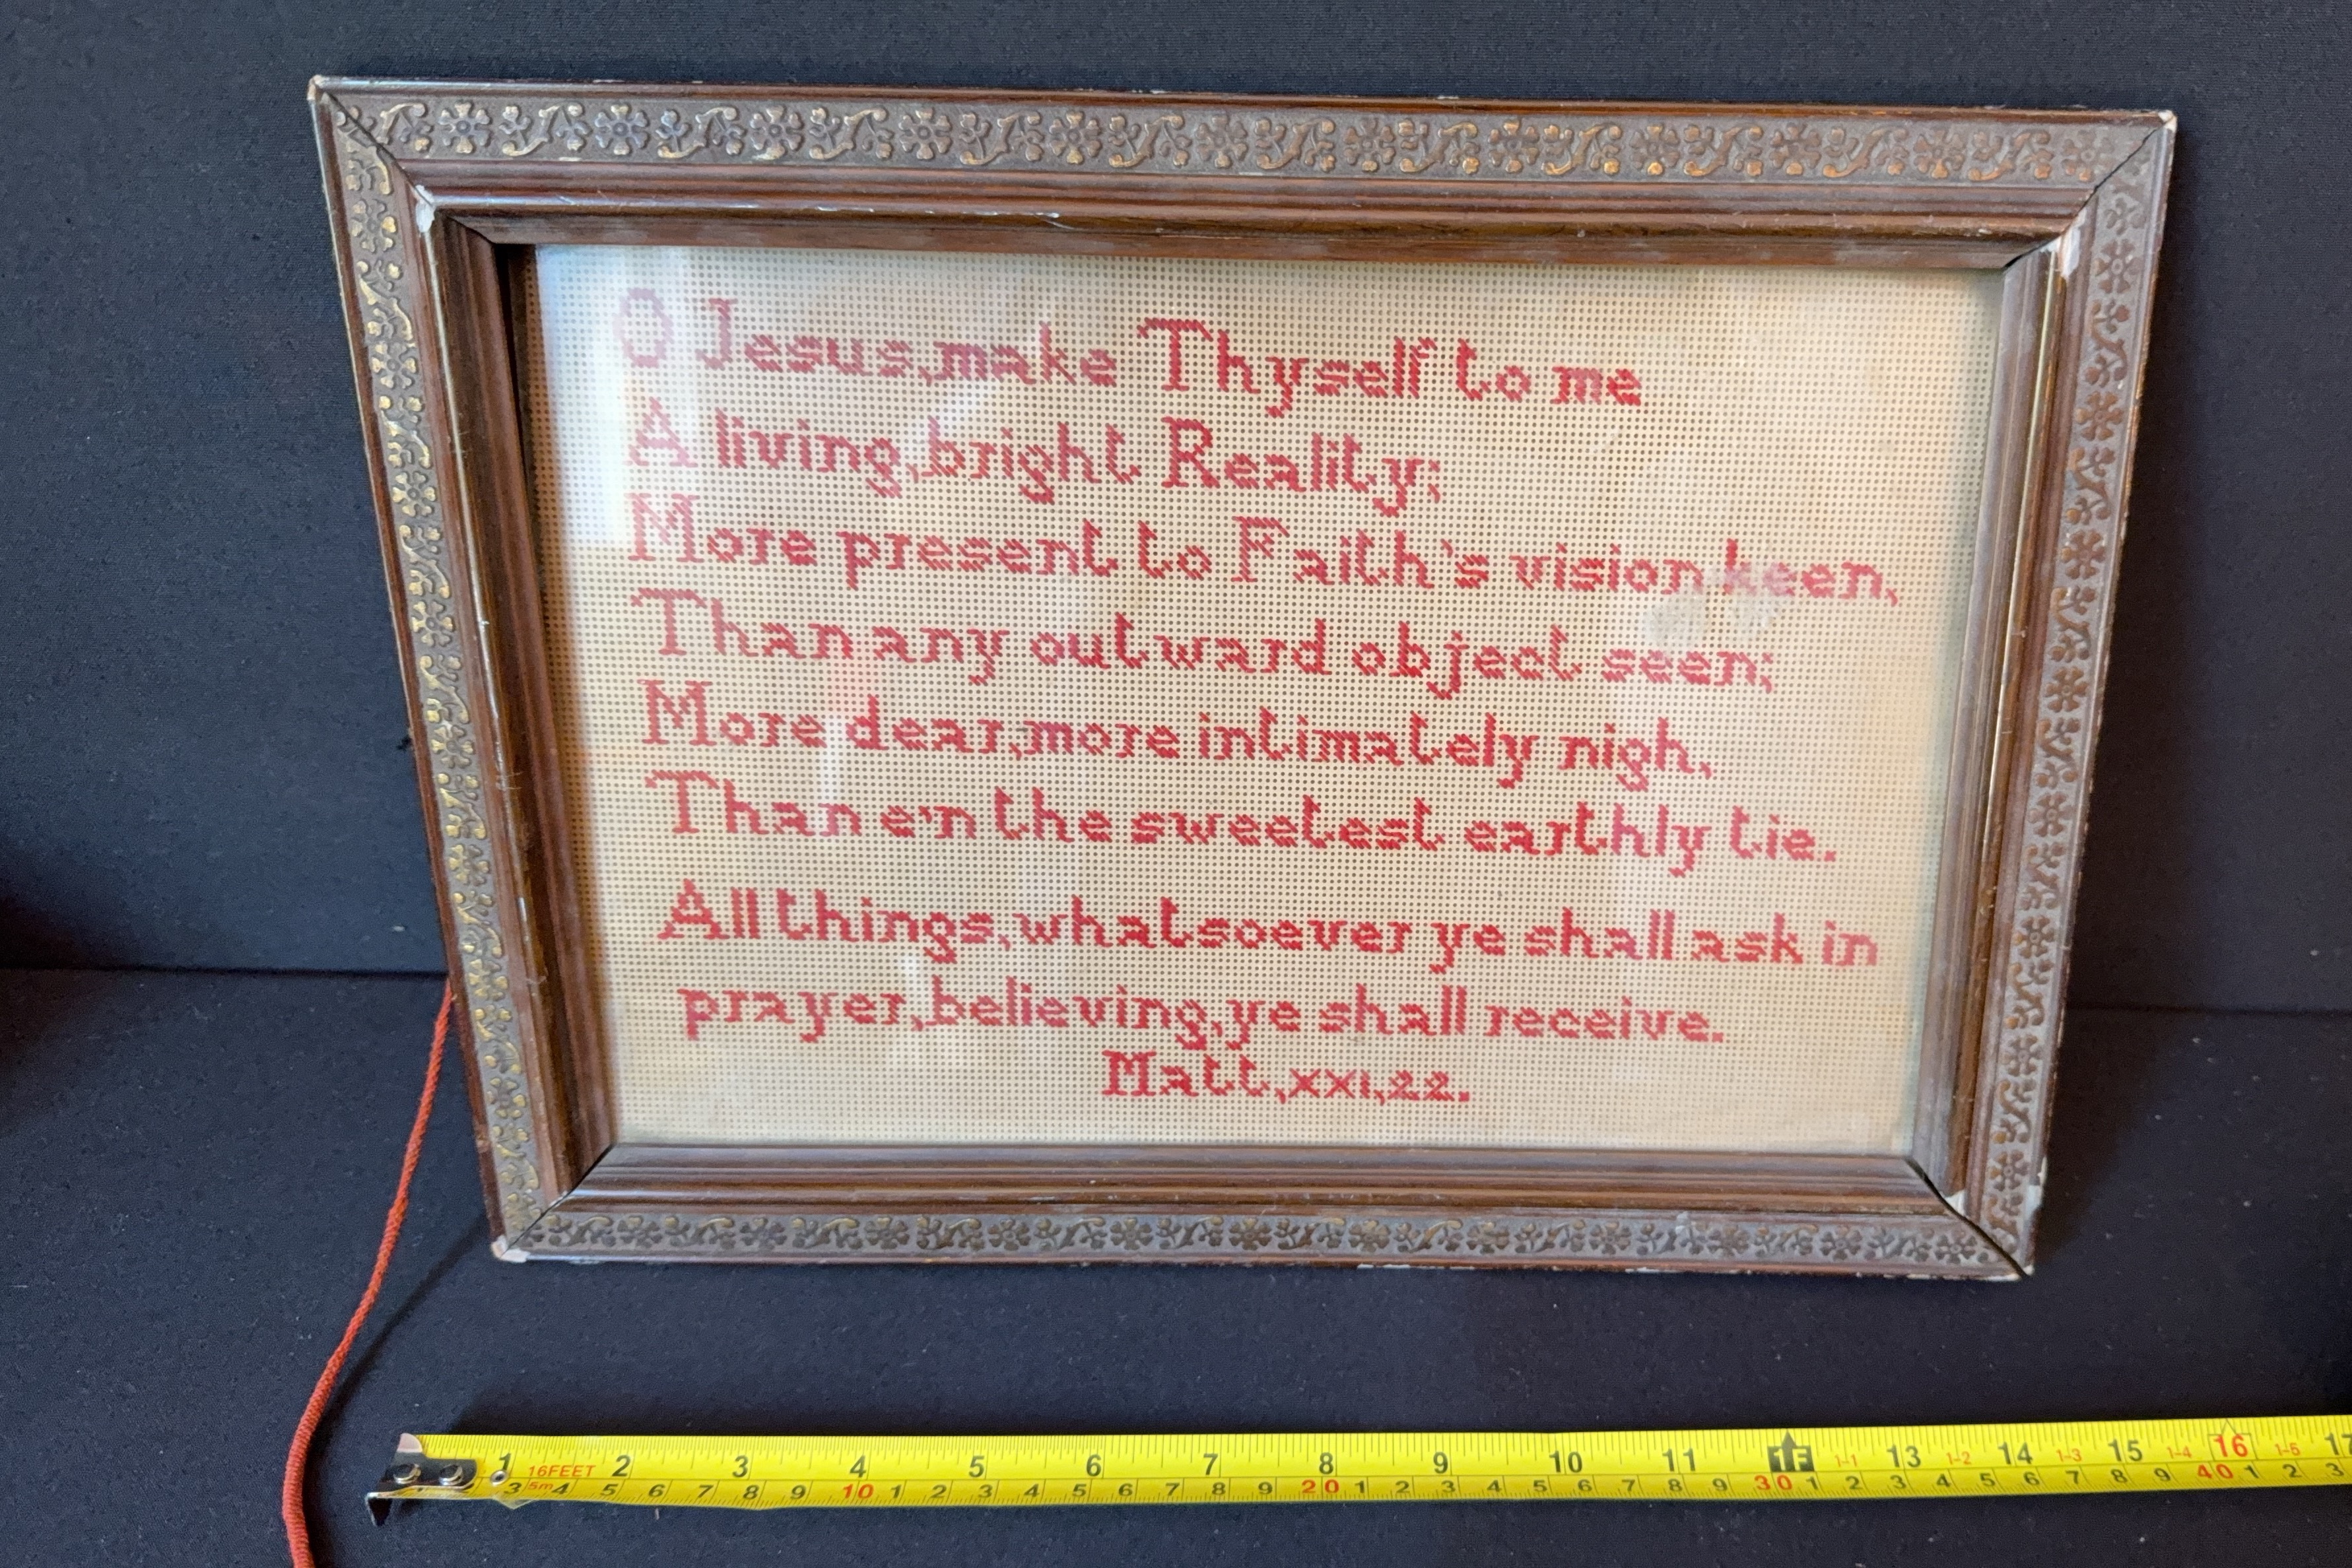 O Jesus, make Thyself to me
A living, bright Reality;
More present to Faith's vision keen,
Than any outward object seen;
More dear, more intimately nigh,
Than e'n the sweetest earthly tie.
All things, whatsoever ye shall ask in
prayer, believing, ye shall receive.
Matt, xxi, 22.
1 2 3 4 5 6 7 8 9 10 11 1F 1-1 13 1-2 14 1-3 15 1-4 16 1-5 17
16FEET
5m
3 4 5 6 7 8 9 10 1 2 3 4 5 6 7 8 9 20 1 2 3 4 5 6 7 8 9 30 1 2 3 4 5 6 7 8 9 40 1 2 3